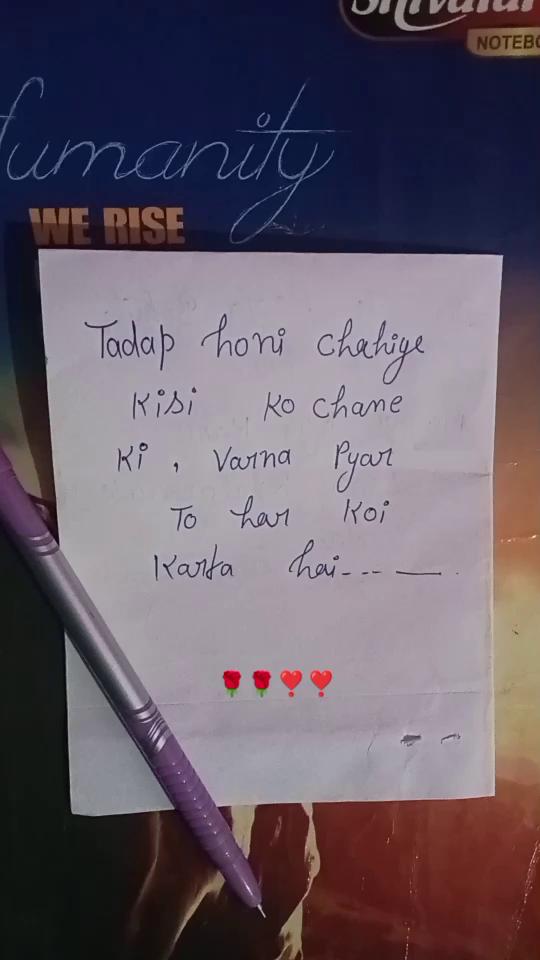 Shivalal
NOTEBO
Humanity
WE RISE
Tadap honi chahiye
Kisi ko chane
Ki , Varna Pyar
To har Koi
Karta hai--- —.
🌹🌹❣️❣️